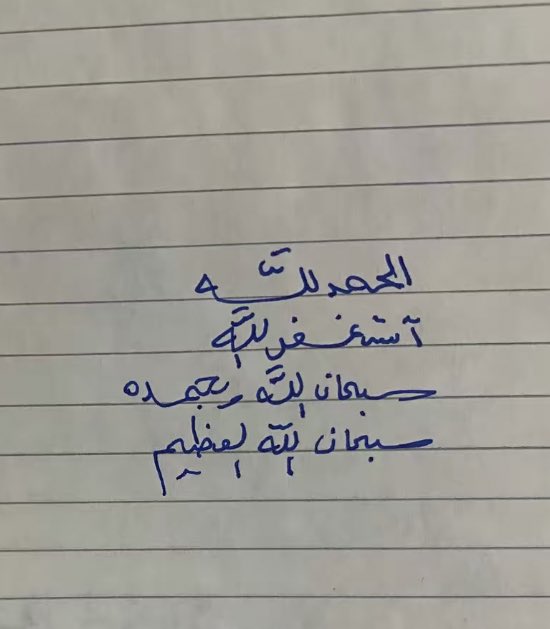 الحمد للّه
آستغفر للّه
سبحان للّه وبحمده
سبحان للّه لعظيم